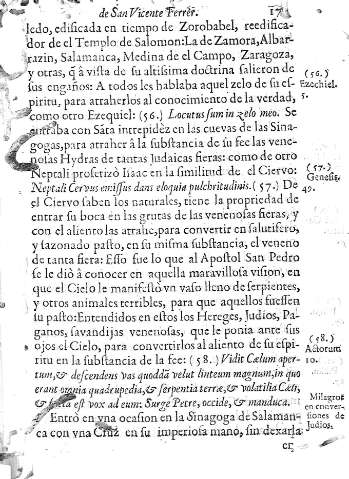 de San Vicente Ferrer. 17
ledo, edificada en tiempo de Zorobabel, reedifica-
dor de el Templo de Salomon: La de Zamora, Albar-
razin, Salamanca, Medina de el Campo, Zaragoza,
y otras, q̃ à vista de su altissima doctrina salieron de
sus engaños: A todos les hablaba aquel zelo de su es-
piritu, para atraherlos al conocimiento de la verdad,
como otro Ezequiel: (56.) Locutus sum in zelo meo. Se
entraba con Santa intrepidèz en las cuevas de las Sina-
gogas, para atraher à la substancia de su fee las vene-
nosas Hydras de tantas Judaicas fieras: como de otro
Neptali profetizò Isaac en la similitud de el Ciervo:
Neptali Cervus emissus dans eloquia pulchritudinis. (57.) De
el Ciervo saben los naturales, tiene la propiedad de
entrar su boca en las grutas de las venenosas fieras, y
con el aliento las atrahe, para convertir en salutifero,
y sazonado pasto, en su misma substancia, el veneno
de tanta fiera: Esso fue lo que al Apostol San Pedro
se le diò à conocer en aquella maravillosa vision, en
que el Cielo le manifestò vn vaso lleno de serpientes,
y otros animales terribles, para que aquellos fuessen
su pasto: Entendidos en estos los Hereges, Judios, Pa-
ganos, savandijas venenosas, que le ponia ante sus
ojos el Cielo, para convertirlos al aliento de su espi-
ritu en la substancia de la fee: (58.) Vidit Cælum aper-
tum, & descendens vas quoddã velut linteum magnum, in quo
erant omnia quadrupedia, & serpentia terræ, & volatilia Cæli,
& facta est vox ad eum: Surge Petre, occide, & manduca.
Entrò en vna ocasion en la Sinagoga de Salaman-
ca con vna Cruz en su imperiosa mano, sin dexarla
er
(56.)
Ezechiel.
5.
(57.)
Genesis,
49.
(58.)
Actorum
10.
Milagros
en conver-
siones de
Judios.